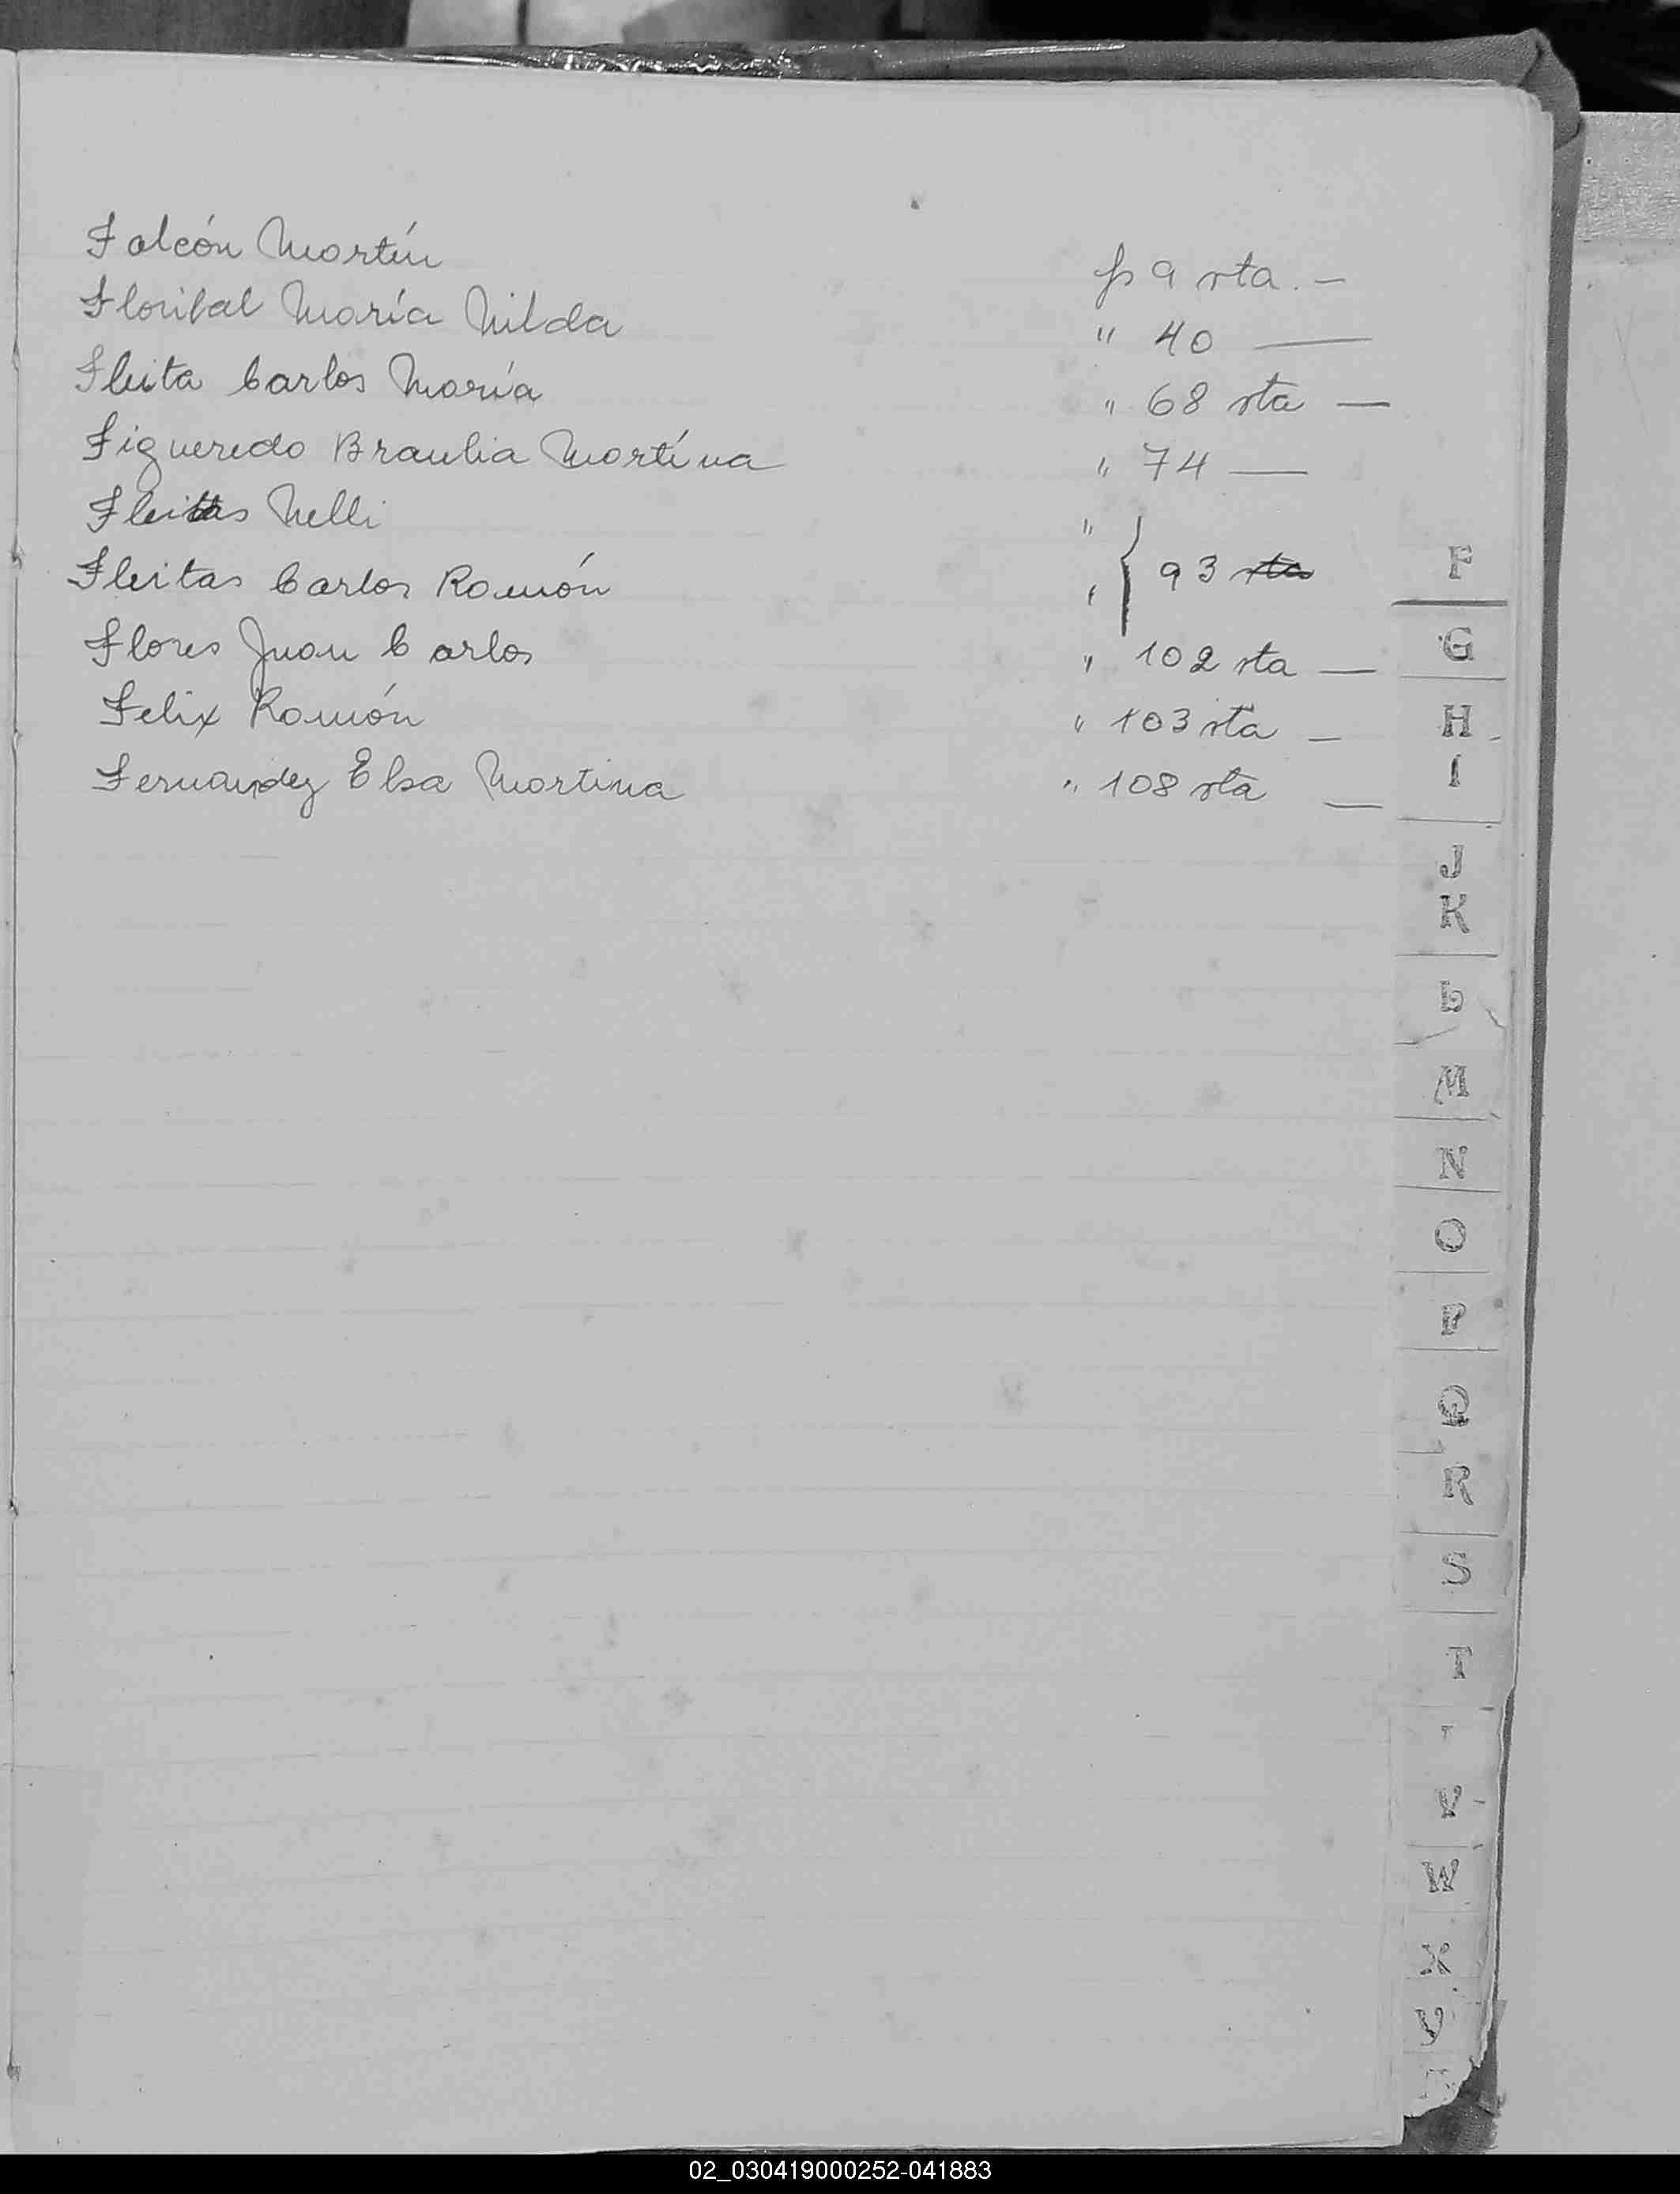 Falcón Martín p 9 vta. —
Floribal María Nilda " 40 —
Fleita Carlos María " 68 vta —
Figueredo Braulia Martína " 74 —
Fleitas Nelli "
Fleitas Carlos Ramón " { 93 vta
Flores Juan Carlos " 102 vta —
Felix Ramón " 103 vta —
Fernandez Elsa Martina " 108 vta —
F
G
H
I
J
K
L
M
N
O
P
Q
R
S
T
V
W
X
Y
02_030419000252-041883